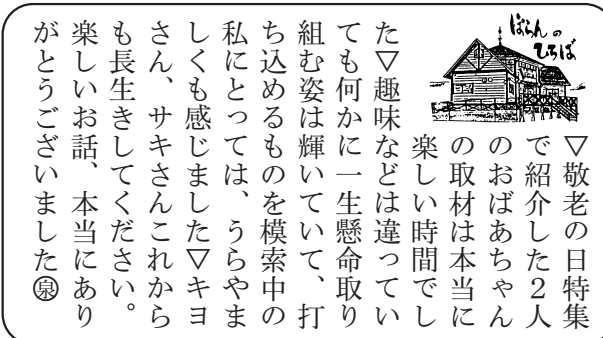 ぽらんの
ひろば
▽敬老の日特集
で紹介した2人
のおばあちゃん
の取材は本当に
楽しい時間でし
た▽趣味などは違ってい
ても何かに一生懸命取り
組む姿は輝いていて、打
ち込めるものを模索中の
私にとっては、うらやま
しくも感じました▽キヨ
さん、サキさんこれから
も長生きしてください。
楽しいお話、本当にあり
がとうございました㊗泉